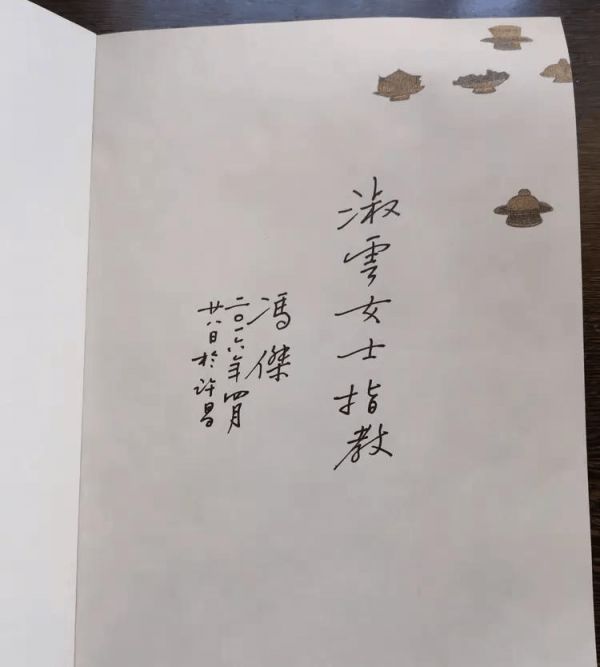 淑雲女士指教
馮傑
二〇一六年四月
廿八日於许昌